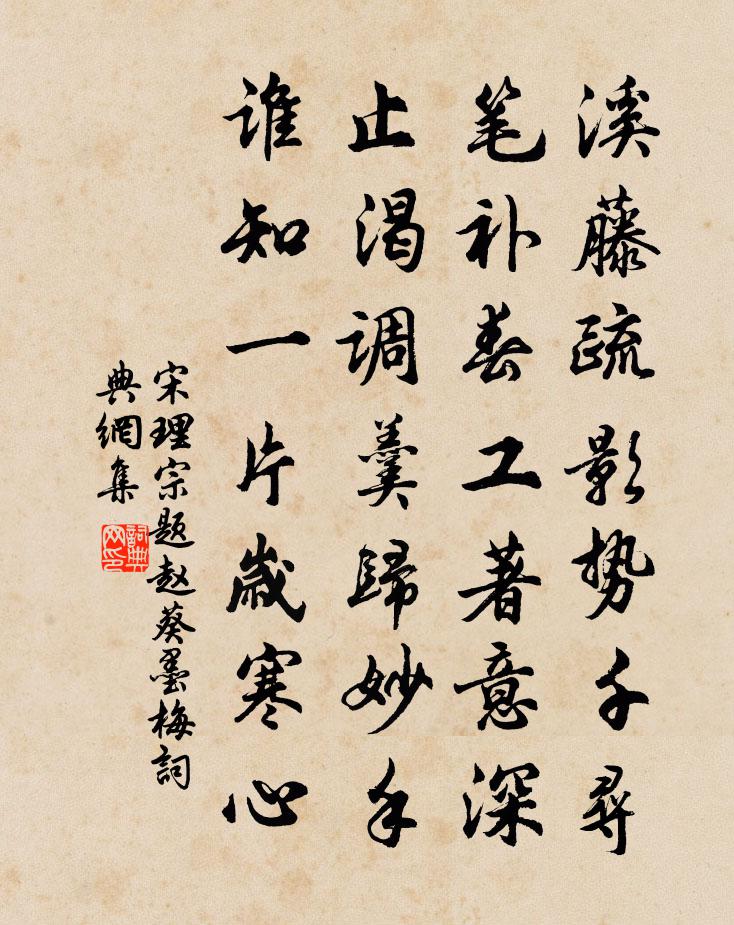 溪藤疏影势千尋
笔补春工著意深
止渴调羹歸妙手
谁知一片歲寒心
宋理宗题赵葵墨梅詞
典網集
詞典
网印